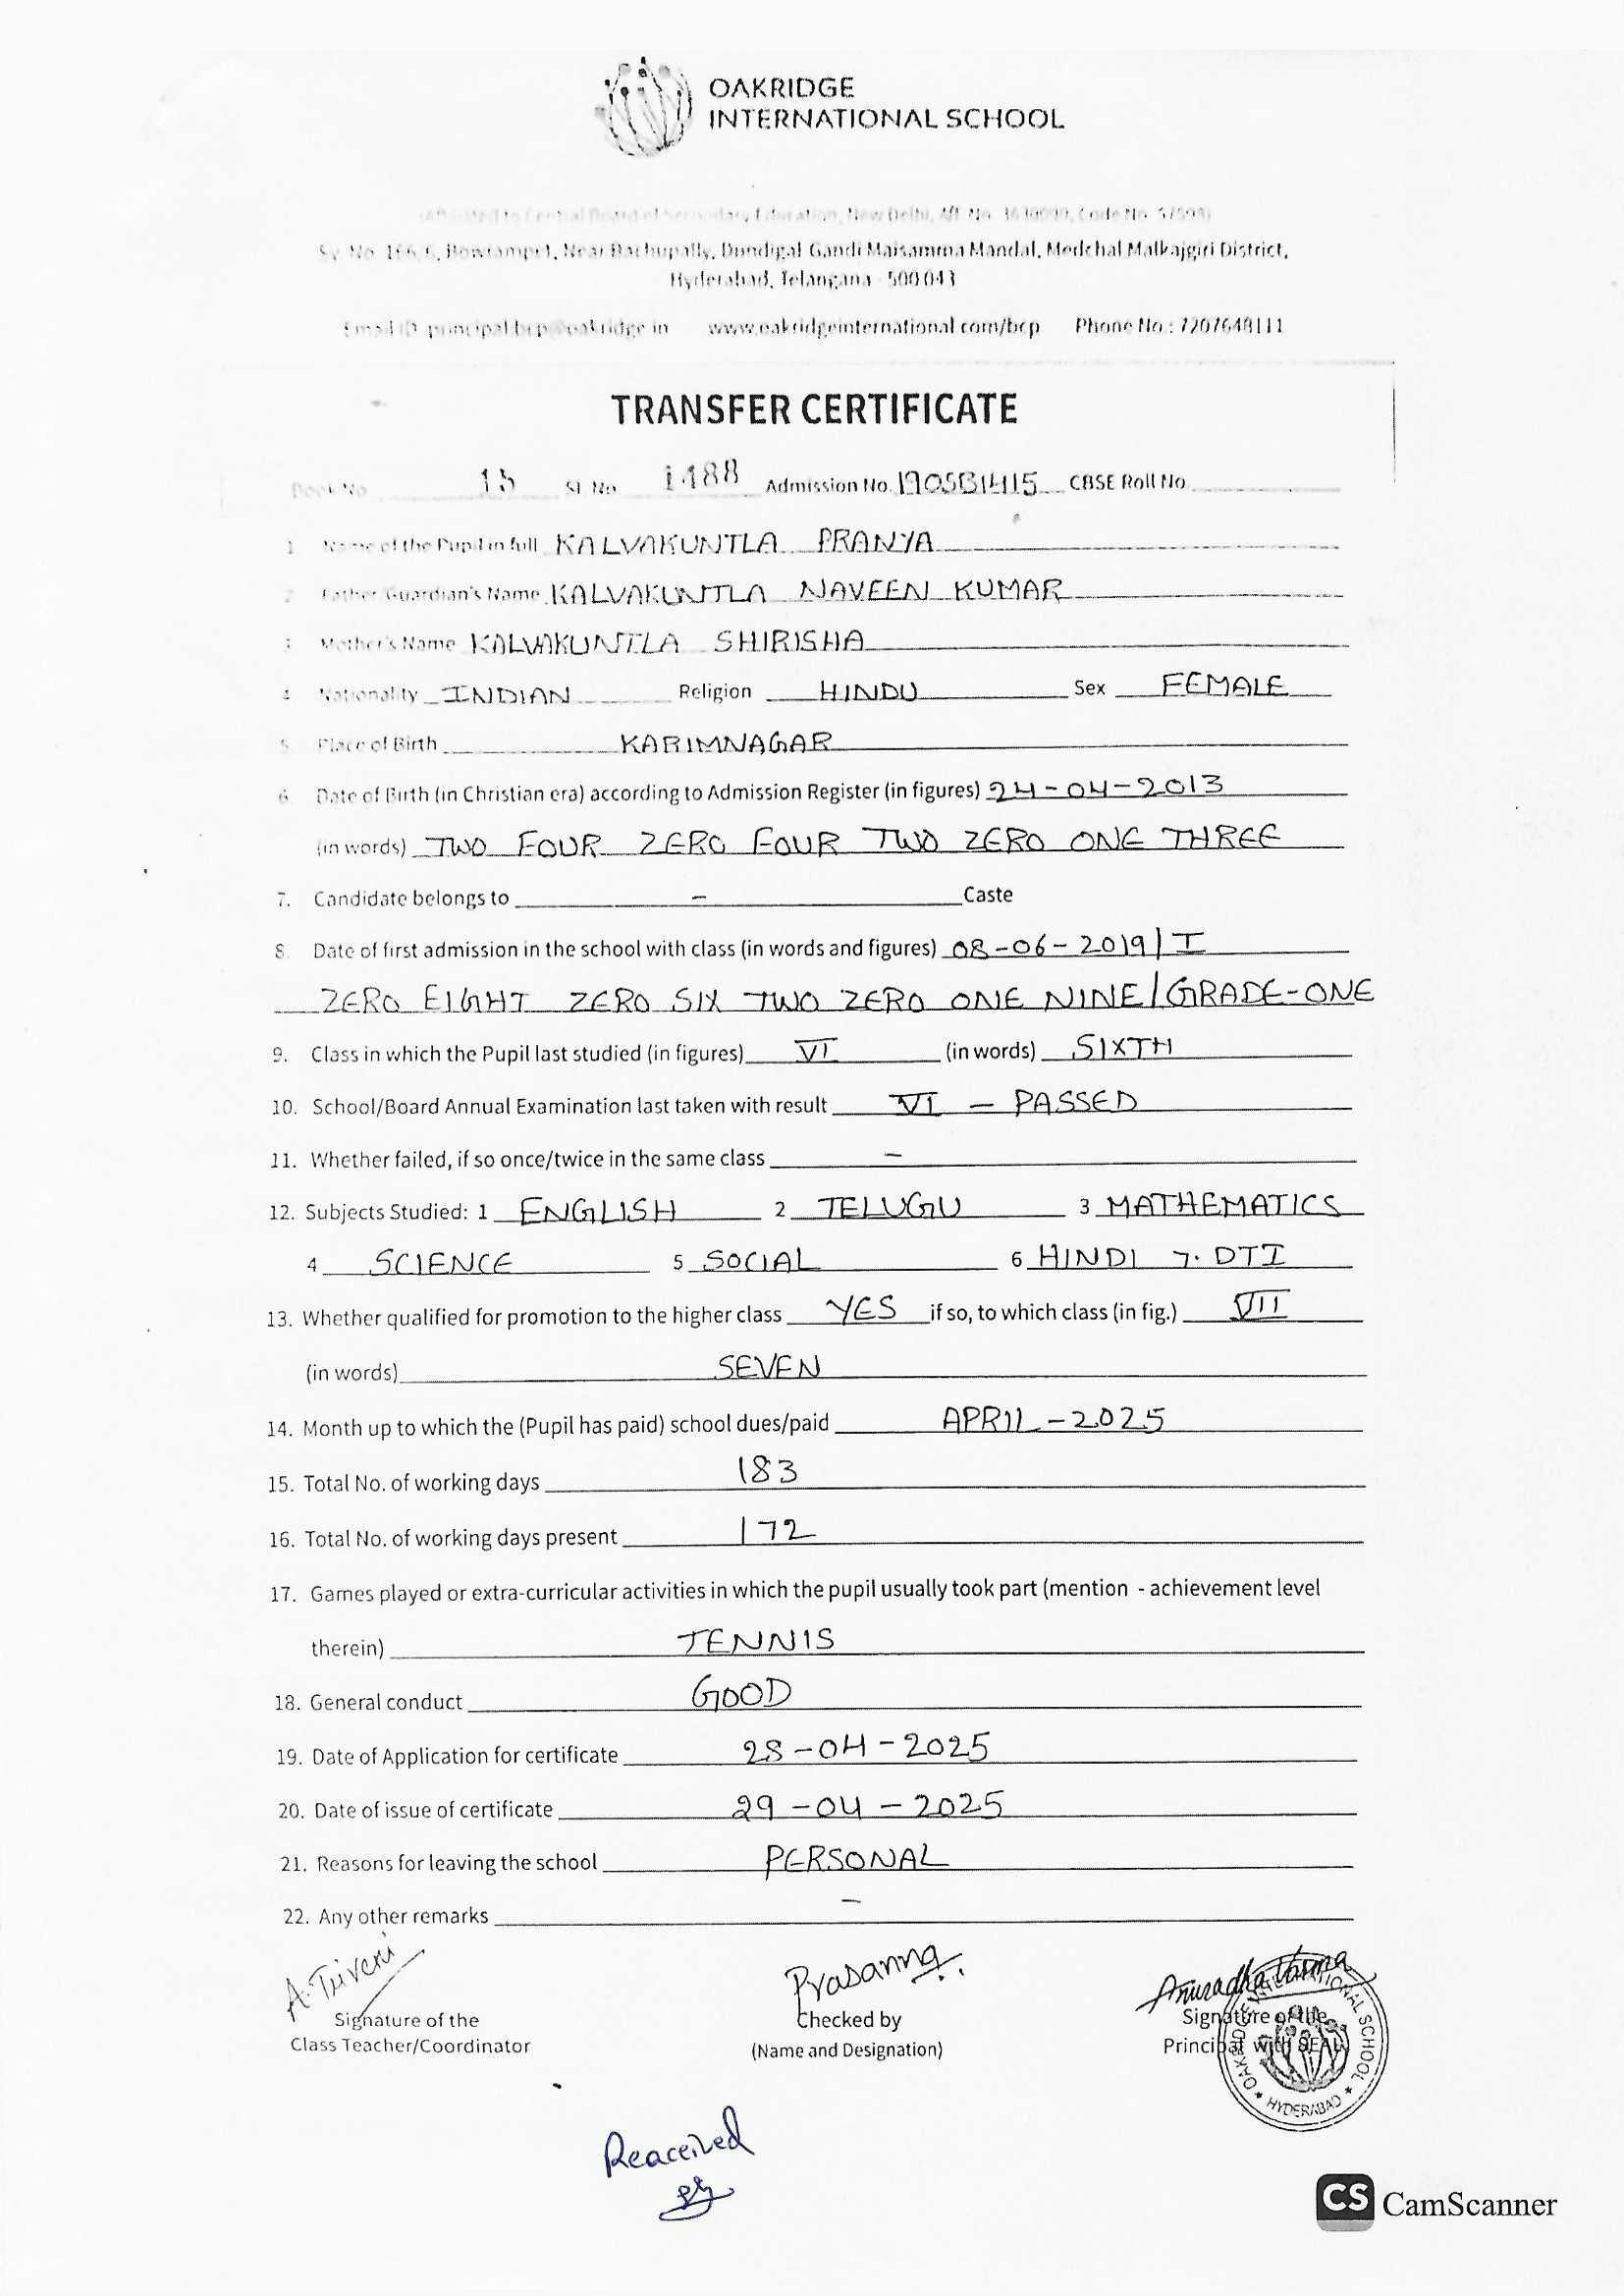 OAKRIDGE
INTERNATIONAL SCHOOL
(Affiliated to Central Board of Secondary Education, New Delhi, Aff. No. Code No.
Sy. No. Bowrampet, Near Bachupally, Dundigal Gandi Maisamma Mandal, Medchal Malkajgiri District,
Hyderabad, Telangana - 500 043
Email ID principal.bcp@oakridge.in www.oakridgeinternational.com/bcp Phone No.: 7207648111
TRANSFER CERTIFICATE
Book No. 15 Sl. No. 1488 Admission No. CBSE Roll No.
1 Name of the Pupil in full KALVAKUNTLA PRANYA
2 Father/Guardian's Name KALVAKUNTLA NAVEEN KUMAR
3 Mother's Name KALVAKUNTLA SHIRISHA
4 Nationality INDIAN Religion HINDU Sex FEMALE
5 Place of Birth KARIMNAGAR
6 Date of Birth (in Christian era) according to Admission Register (in figures) 24-04-2013
(in words) TWO FOUR ZERO FOUR TWO ZERO ONE THREE
7. Candidate belongs to – Caste
8. Date of first admission in the school with class (in words and figures) 08-06-2019/I
ZERO EIGHT ZERO SIX TWO ZERO ONE NINE/GRADE-ONE
9. Class in which the Pupil last studied (in figures) VI (in words) SIXTH
10. School/Board Annual Examination last taken with result VI – PASSED
11. Whether failed, if so once/twice in the same class –
12. Subjects Studied: 1 ENGLISH 2 TELUGU 3 MATHEMATICS
4 SCIENCE 5 SOCIAL 6 HINDI 7. DTI
13. Whether qualified for promotion to the higher class YES if so, to which class (in fig.) VII
(in words) SEVEN
14. Month up to which the (Pupil has paid) school dues/paid APRIL -2025
15. Total No. of working days 183
16. Total No. of working days present 172
17. Games played or extra-curricular activities in which the pupil usually took part (mention - achievement level
therein) TENNIS
18. General conduct GOOD
19. Date of Application for certificate 28-04-2025
20. Date of issue of certificate 29-04-2025
21. Reasons for leaving the school PERSONAL
22. Any other remarks –
A. Triveni Prasanna Anuradha Varma
Signature of the Checked by Signature of the
Class Teacher/Coordinator (Name and Designation) Principal with SEAL
OAKRIDGE INTERNATIONAL SCHOOL
* HYDERABAD *
Reaceived
CS CamScanner